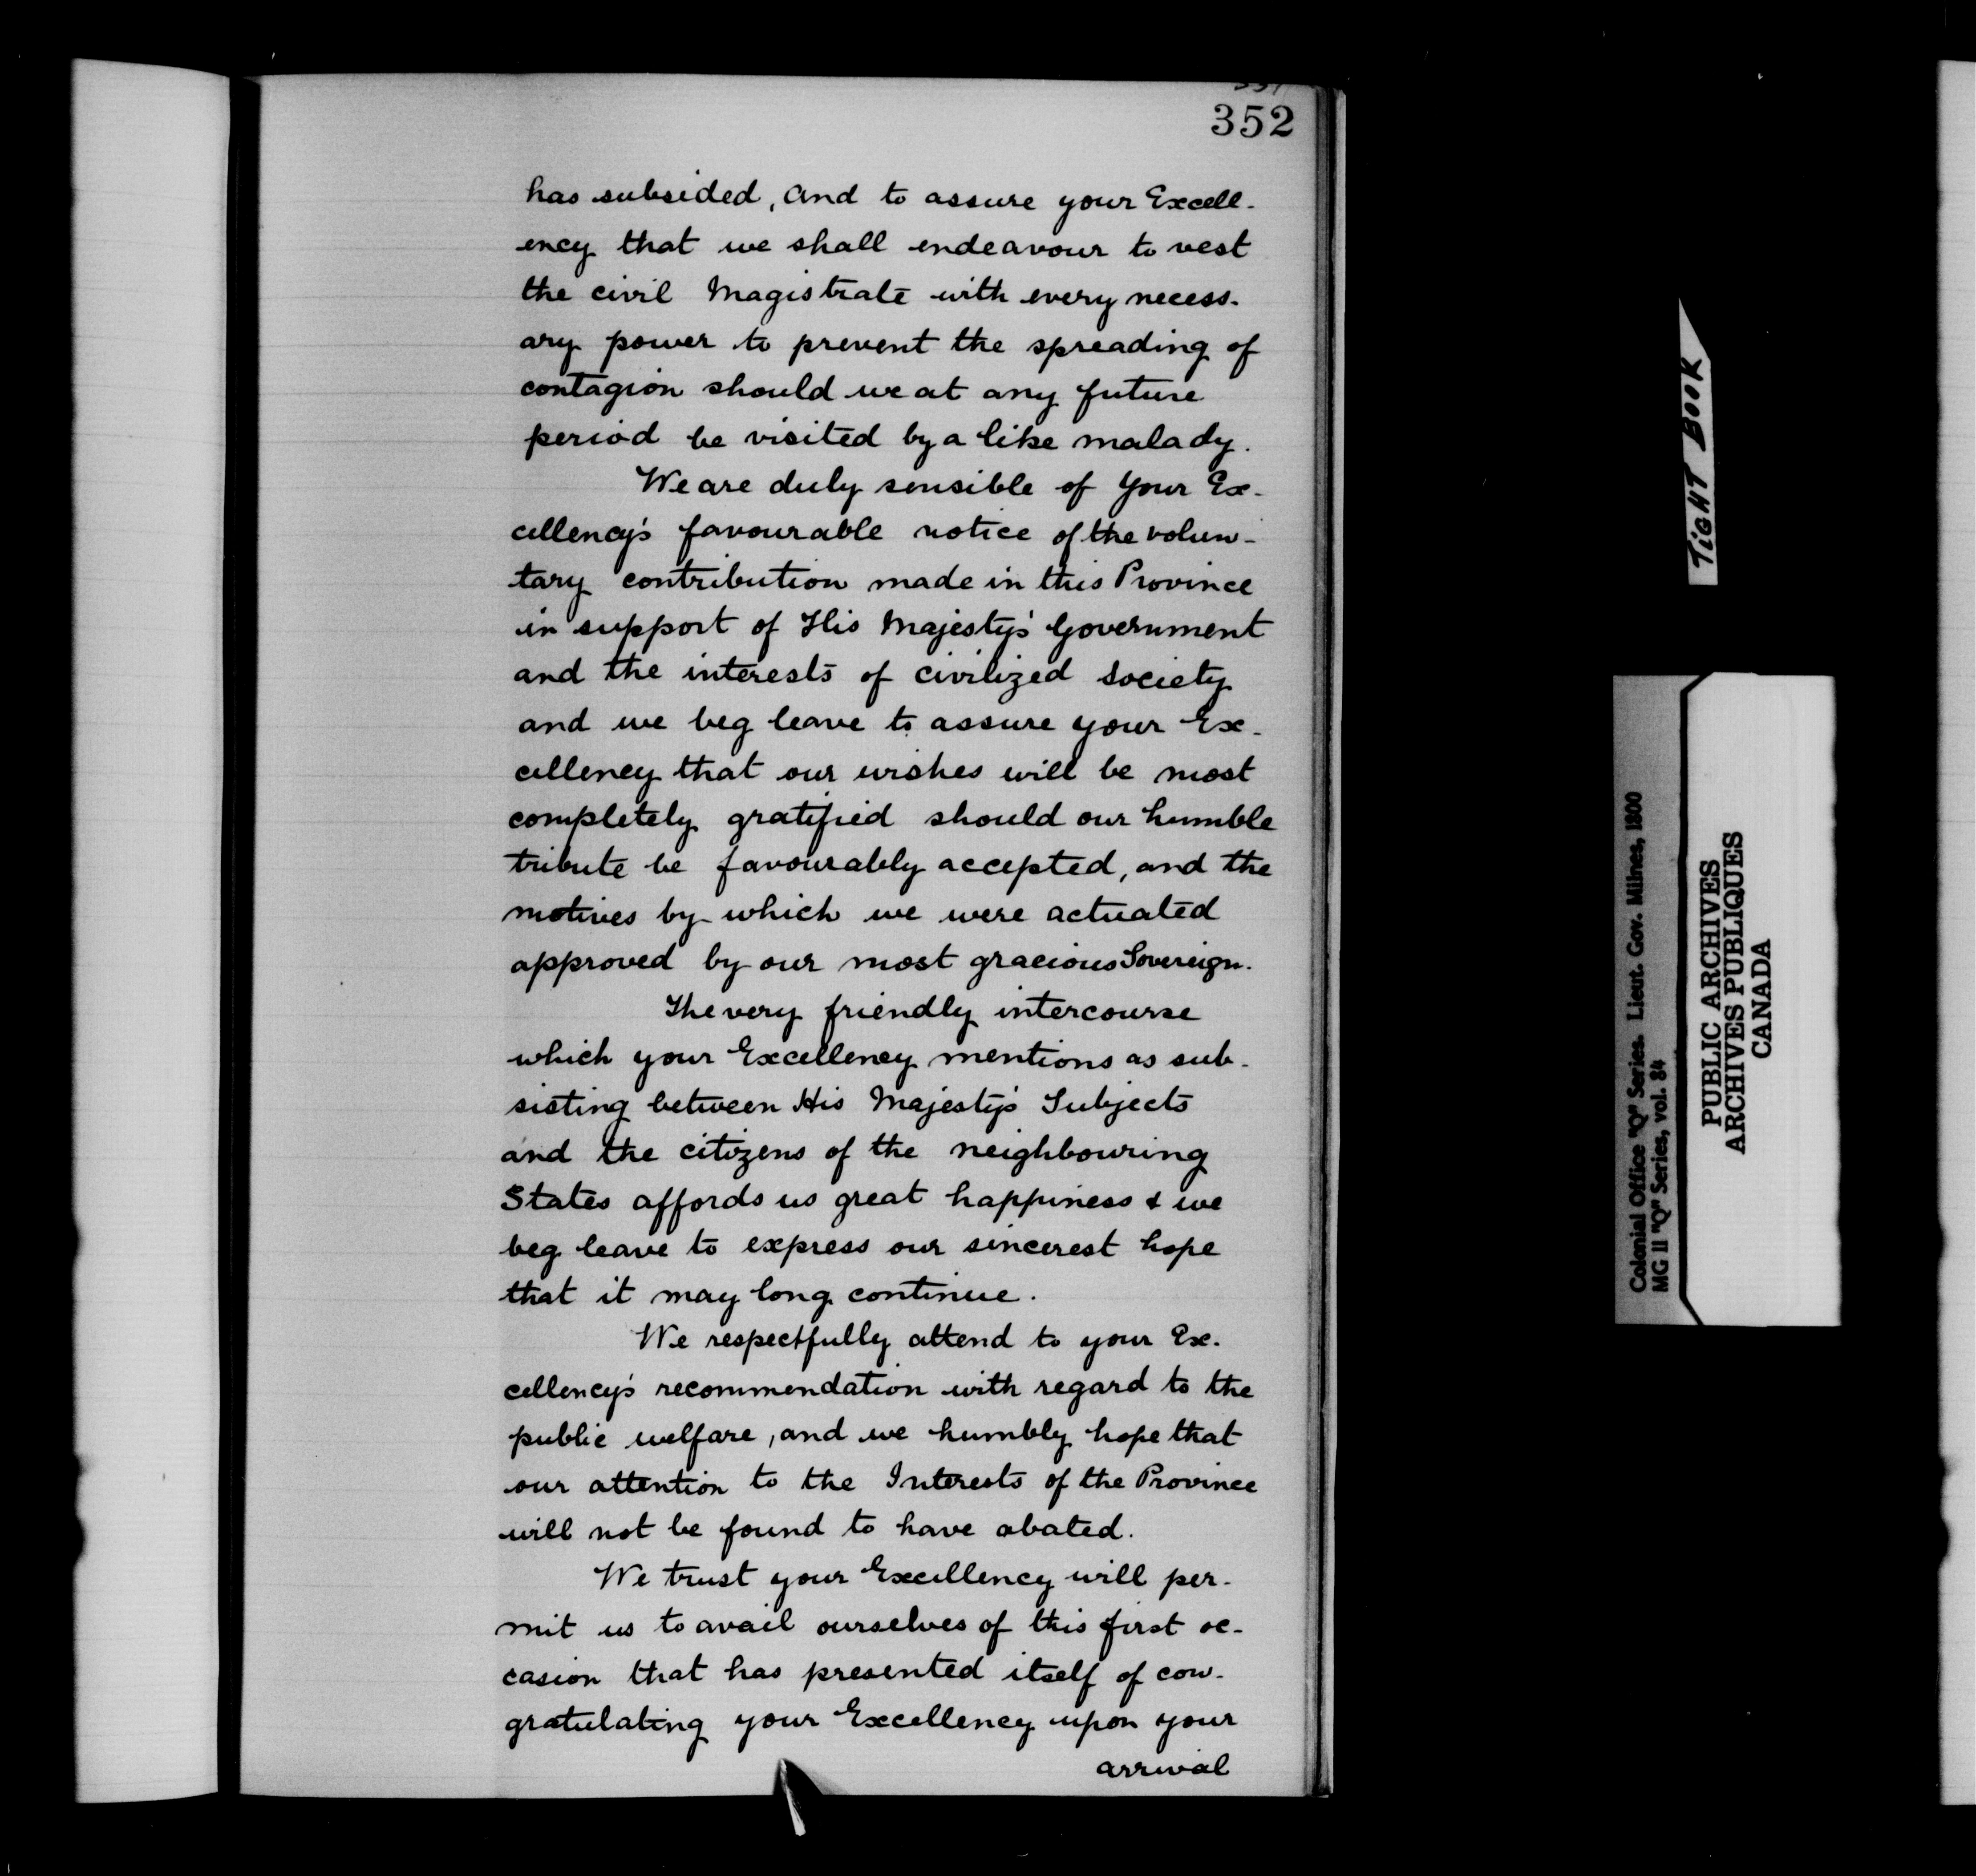 352
has subsided, and to assure your Excell-
ency that we shall endeavour to vest
the civil Magistrate with every necess-
ary power to prevent the spreading of
contagion should we at any future
period be visited by a like malady.
We are duly sensible of your Ex-
cellency's favourable notice of the volun-
tary contribution made in this Province
in support of His Majesty's Government
and the interests of civilized Society
and we beg leave to assure your Ex-
cellency that our wishes will be most
completely gratified should our humble
tribute be favourably accepted, and the
motives by which we were actuated
approved by our most gracious Sovereign.
The very friendly intercourse
which your Excellency mentions as sub-
sisting between His Majesty's Subjects
and the citizens of the neighbouring
States affords us great happiness & we
beg leave to express our sincerest hope
that it may long continue.
We respectfully attend to your Ex-
cellency's recommendation with regard to the
public welfare, and we humbly hope that
our attention to the Interests of the Province
will not be found to have abated.
We trust your Excellency will per-
mit us to avail ourselves of this first oc-
casion that has presented itself of con-
gratulating your Excellency upon your
arrival
TIGHT BOOK
Colonial Office "Q" Series. Lieut. Gov. Milnes, 1800
MG 11 "Q" Series, vol. 84
PUBLIC ARCHIVES
ARCHIVES PUBLIQUES
CANADA